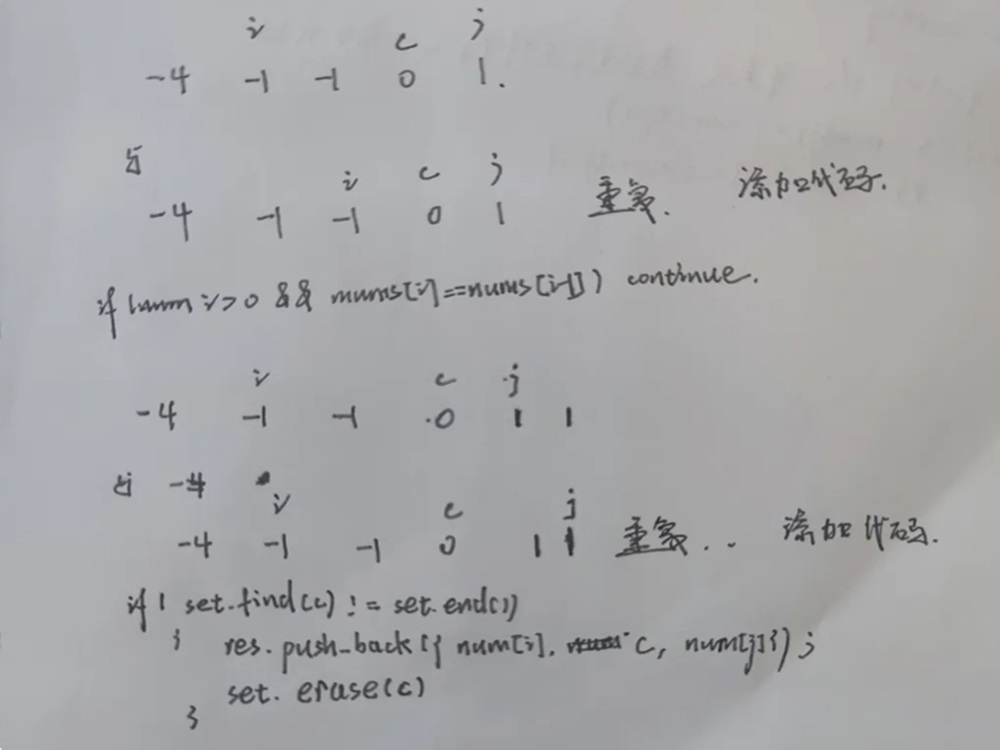 i c j
-4 -1 -1 0 1.
与
i c j
-4 -1 -1 0 1 重复. 添加代码.
if (i>0 && nums[i]==nums[i-1]) continue.
i c j
-4 -1 -1 0 1 1
与
i c j
-4 -1 -1 0 1 1 重复.. 添加代码.
if ( set.find(c) != set.end())
{ res.push_back({ num[i], c, num[j]});
set.erase(c)
}